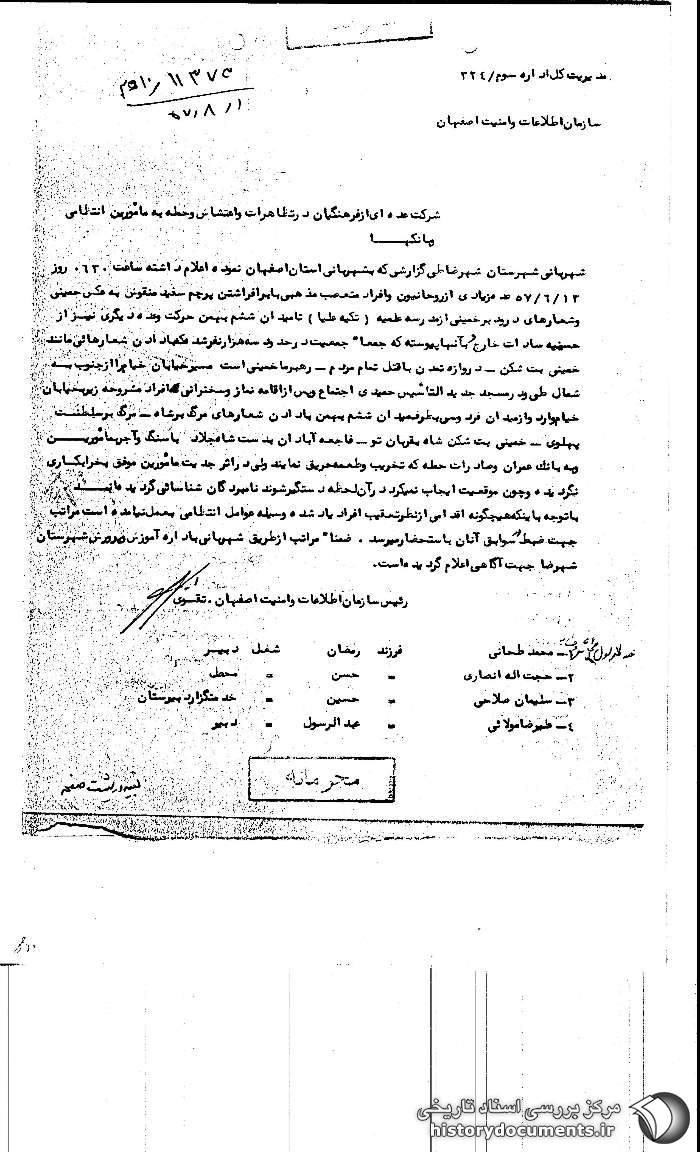 ۱۱۳۷۵
۵۷/۸/۱
مدیریت کل اداره سوم/۳۲٤
سازمان اطلاعات وامنیت اصفهان
شرکت عده ای از فرهنگیان در تظاهرات واغتشاش وحمله به مأمورین انتظامی
وبانکها
شهربانی شهرستان شهرضا طی گزارشی که بشهربانی استان اصفهان نموده اعلام داشته ساعت ۰۶۳۰ روز
۵۷/۶/۱۳ عده زیادی از روحانیون وافراد متعصب مذهبی با برافراشتن پرچم سفید منقوش به عکس خمینی
وشعارهای درود بر خمینی از مدرسه علمیه (تکیه علیا) تا میدان ششم بهمن حرکت وعده دیگری نیز از
حسینیه سادات خارج و بآنها پیوسته که جمعا" جمعیت در حدود سه هزار نفر شد که با دادن شعارهائی مانند
خمینی بت شکن ـ دروازه تمدن با قتل تمام مردم ـ رهبر ما خمینی است مسیر خیابان خیام را از جنوب به
شمال طی و در مسجد جدید التأسیس حمیدی اجتماع وپس از اقامه نماز وسخنرانی افراد مشروحه زیر بخیابان
خیام وارد واز میدان فردوسی بطرف میدان ششم بهمن با دادن شعارهای مرگ بر شاه ـ مرگ بر سلطنت
پهلوی ـ خمینی بت شکن شاه بقربان تو ـ فاجعه آبادان بدست شاه جلاد با سنگ وآجر به مأمورین
وبه بانک عمران وصادرات حمله که تخریب وطعمه حریق نمایند ولی در اثر جدیت مأمورین موفق بخرابکاری
نگردیده وچون موقعیت ایجاب نمیکرد در آن لحظه دستگیر شوند نامبردگان شناسائی گردیده اند
با توجه باینکه هیچگونه اقدامی از نظر تعقیب افراد یاد شده وسیله عوامل انتظامی بعمل نیامده است مراتب
جهت ضبط در سوابق آنان باستحضار میرسد . ضمنا" مراتب از طریق شهربانی باداره آموزش وپرورش شهرستان
شهرضا جهت آگاهی اعلام گردیده است.
رئیس سازمان اطلاعات وامنیت اصفهان . تقوی
۱ـ محمد طحانی فرزند رمضان شغل دبیر
۲ـ حجت اله انصاری " حسن " محصل
۳ـ سلیمان صلاحی " حسین " خدمتگزار دبیرستان
٤ـ علیرضا مولائی " عبدالرسول " دبیر
محرمانه
بقیه در پشت صفحه
مرکز بررسی اسناد تاریخی
historydocuments.ir